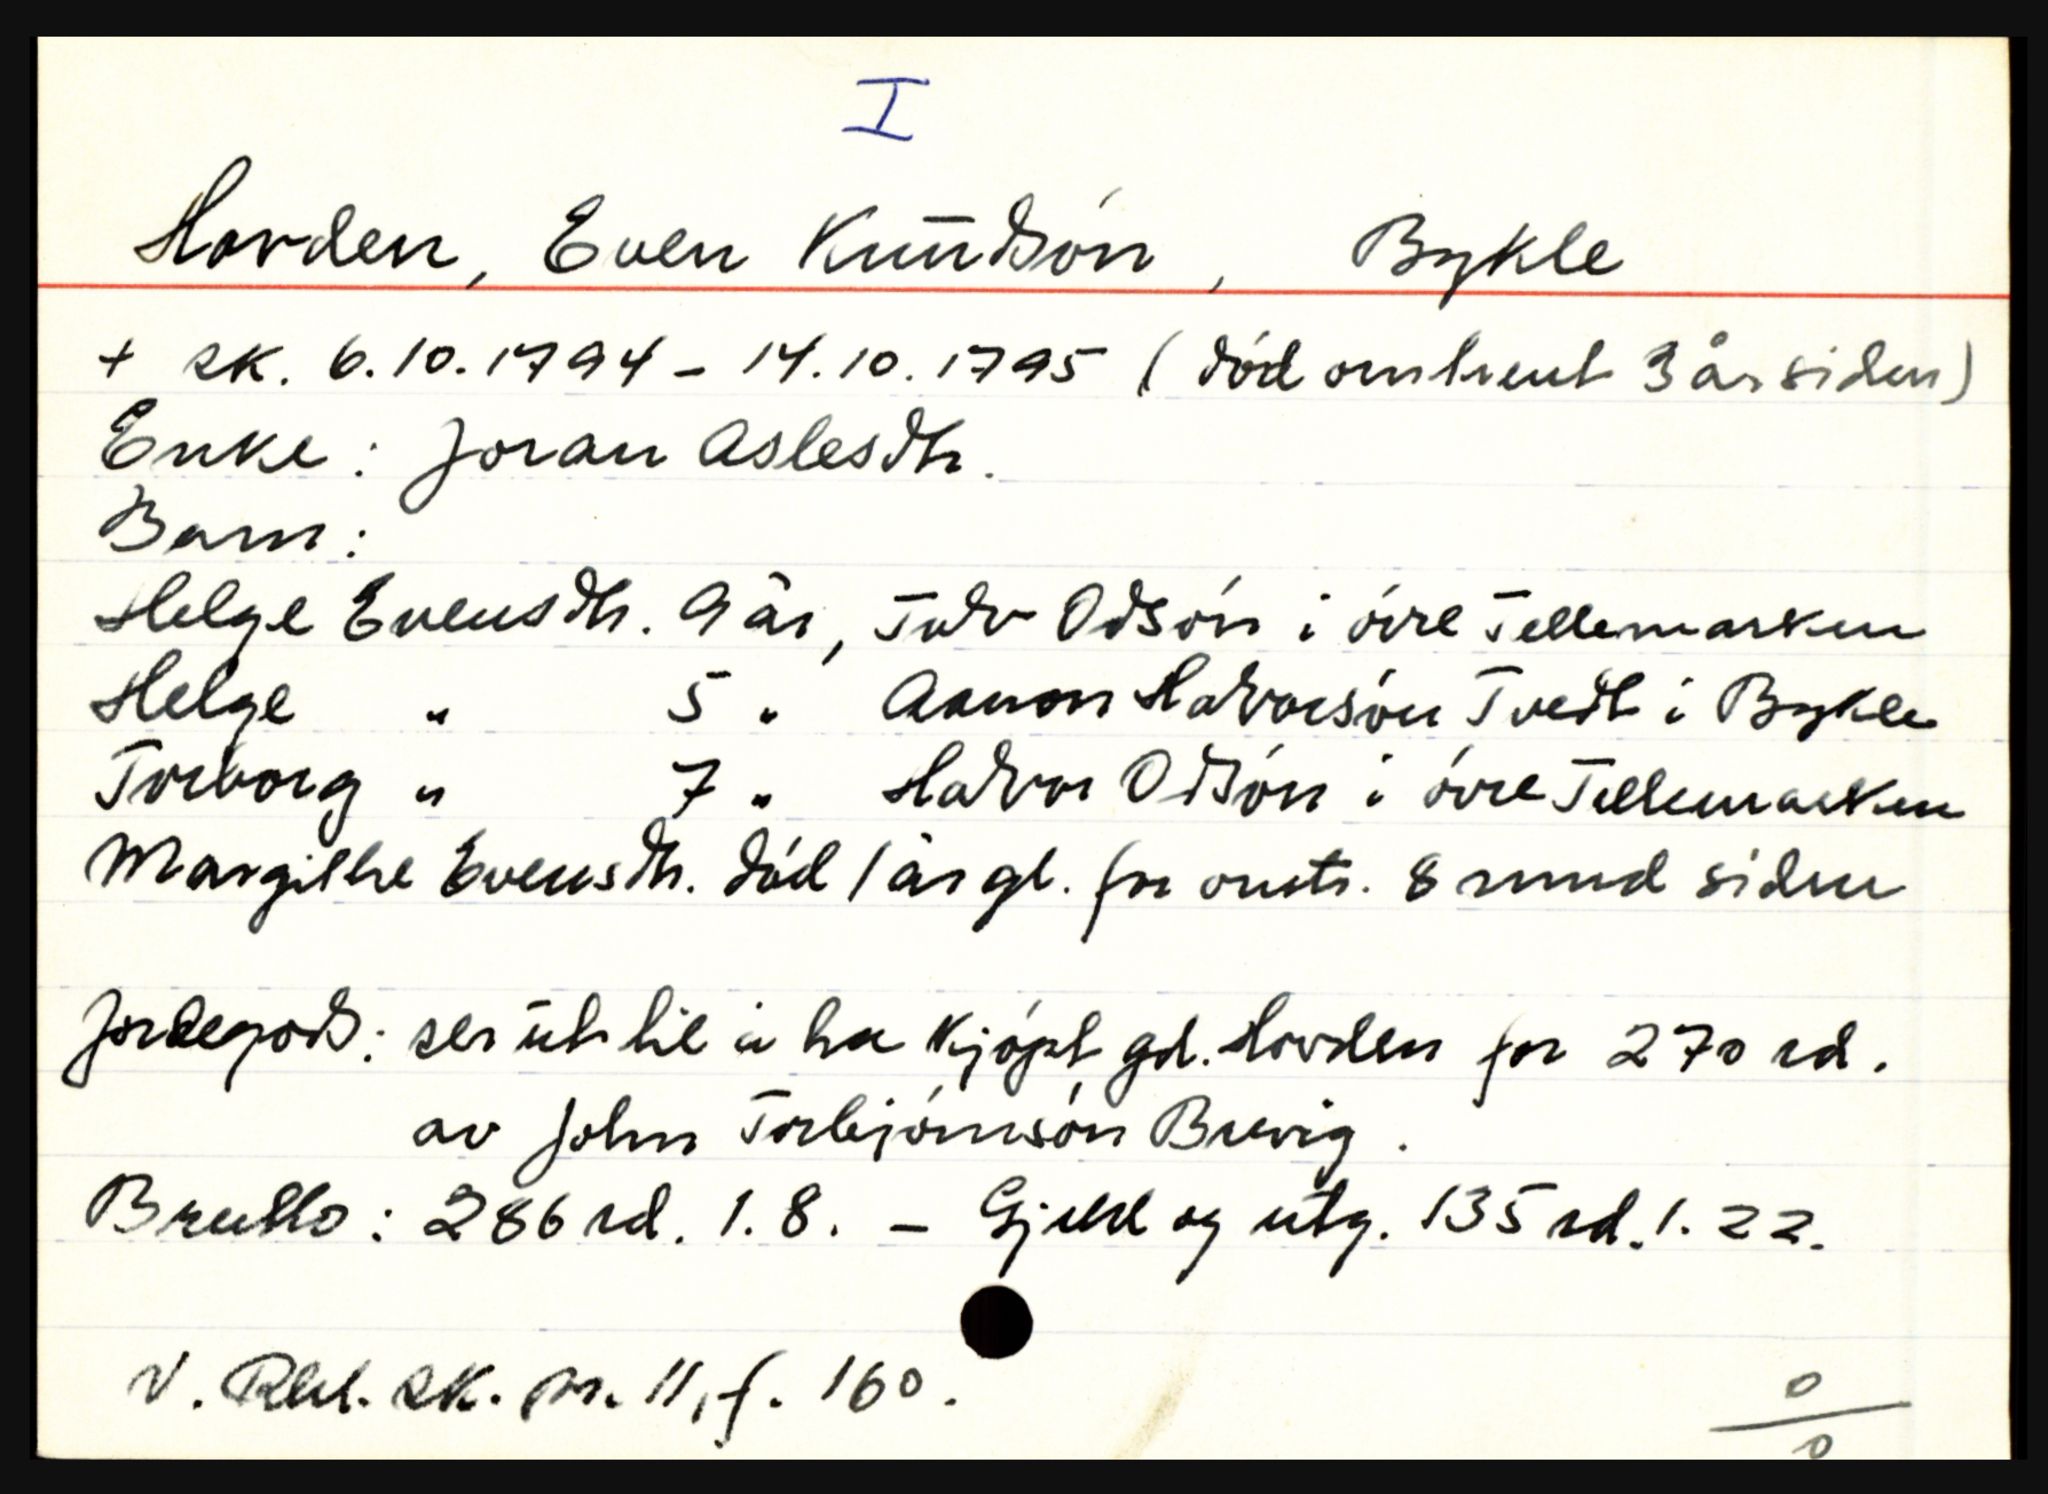 I
Hovden, Even Knudsón, Bykle
+ sk. 6.10.1794 - 14.10.1795 (död omtrent 3 år siden)
Enke: Joran Aslesdtr.
Barn:
Helge Evensdtr. 9 år, Tolv Odsón i óvre Tellemarken
Helge " 5 " Aanon Halvorsón Tvedt i Bykle
Torborg " 7 " Halvor Odsón i óvre Tellemarken
Margithe Evensdtr. död 1 år gl. for omtr. 8 mnd siden
Jordegods: ser ut til å ha kjópt gd. Hovden for 270 rd.
av John Torbjórnsón Breivig.
Brutto: 286 rd. 1. 8. - Gjeld og utg. 135 rd. 1. 22.
V. Rbl. sk. pr. 11, f. 160.
0
0